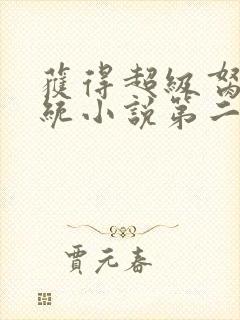 獲得超級
統小説第二
賈元春